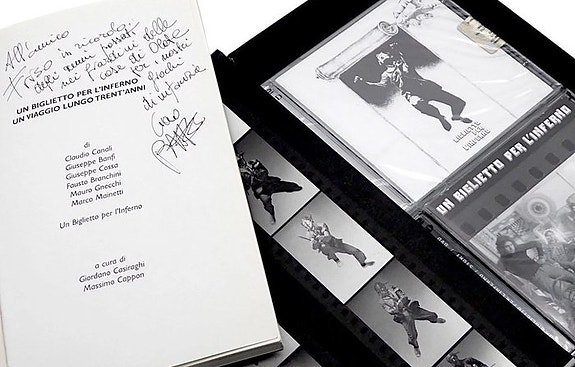 All'amico
Friso in ricordo
degli anni passati
nei giardini delle
case di Olate
per i nostri
giochi
di infanzia
Ciao
UN BIGLIETTO PER L'INFERNO
UN VIAGGIO LUNGO TRENT'ANNI
di
Claudio Canali
Giuseppe Banfi
Giuseppe Cossa
Fausto Branchini
Mauro Gnecchi
Marco Mainetti
Un Biglietto per l'Inferno
a cura di
Giordano Casiraghi
Massimo Cappon
BIGLIETTO
PER
L'INFERNO
UN BIGLIETTO PER L'INFERNO